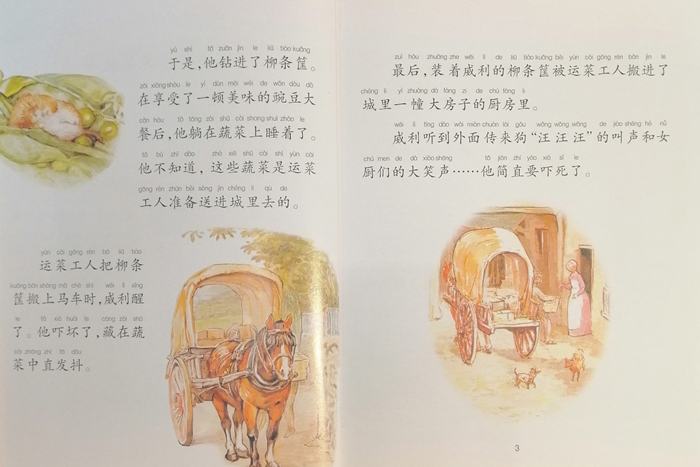 yú shì tā zuān jìn le liǔ tiáo kuāng
于是，他钻进了柳条筐。
zài xiǎng shòu le yí dùn měi wèi de wān dòu dà
在享受了一顿美味的豌豆大
cān hòu tā tǎng zài shū cài shàng shuì zháo le
餐后，他躺在蔬菜上睡着了。
tā bù zhī dào zhè xiē shū cài shì yùn cài
他不知道，这些蔬菜是运菜
gōng rén zhǔn bèi sòng jìn chéng lǐ qù de
工人准备送进城里去的。
yùn cài gōng rén bǎ liǔ tiáo
运菜工人把柳条
kuāng bān shàng mǎ chē shí wēi lì xǐng
筐搬上马车时，威利醒
le tā xià huài le cáng zài shū
了。他吓坏了，藏在蔬
cài zhōng zhí fā dǒu
菜中直发抖。
zuì hòu zhuāng zhe wēi lì de liǔ tiáo kuāng bèi yùn cài gōng rén bān jìn le
最后，装着威利的柳条筐被运菜工人搬进了
chéng lǐ yí zhuàng dà fáng zi de chú fáng lǐ
城里一幢大房子的厨房里。
wēi lì tīng dào wài miàn chuán lái gǒu wāng wāng wāng de jiào shēng hé nǚ
威利听到外面传来狗“汪汪汪”的叫声和女
chú men de dà xiào shēng tā jiǎn zhí yào xià sǐ le
厨们的大笑声……他简直要吓死了。
3